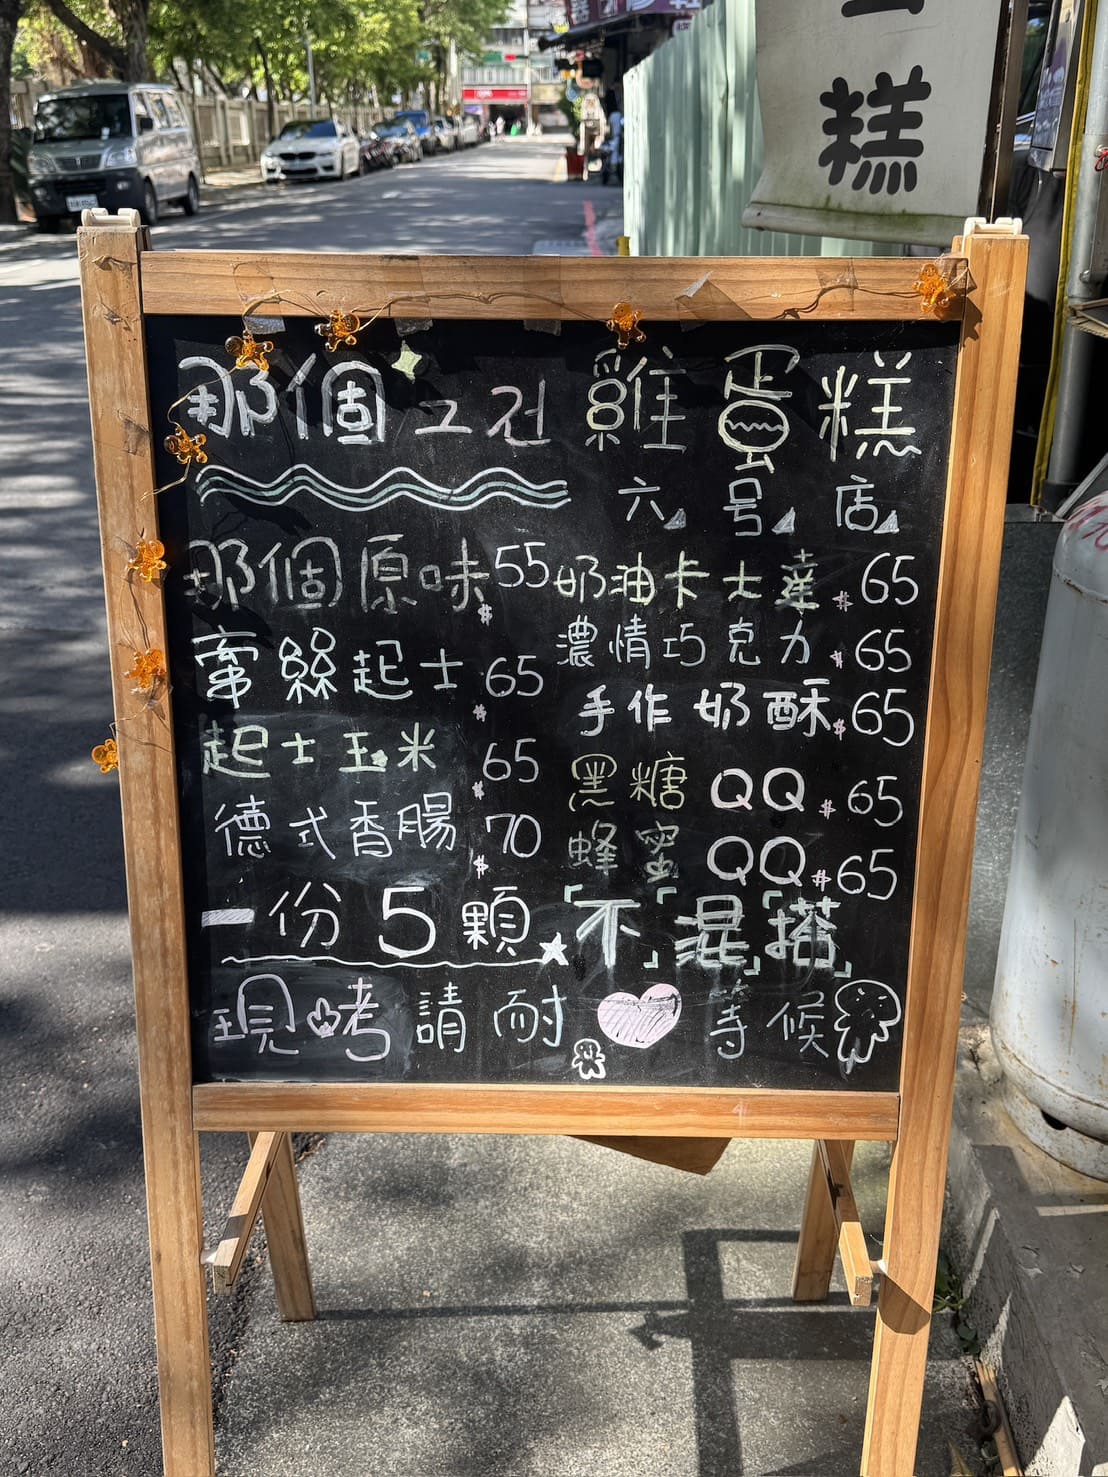 糕
那個그건 雞蛋糕
六 号 店
那個原味 $55
牽絲起士 $65
起士玉米 $65
德式香腸 $70
奶油卡士達 $65
濃情巧克力 $65
手作奶酥 $65
黑糖QQ $65
蜂蜜QQ $65
一份5顆 「不」「混」「搭」
現烤請耐等候